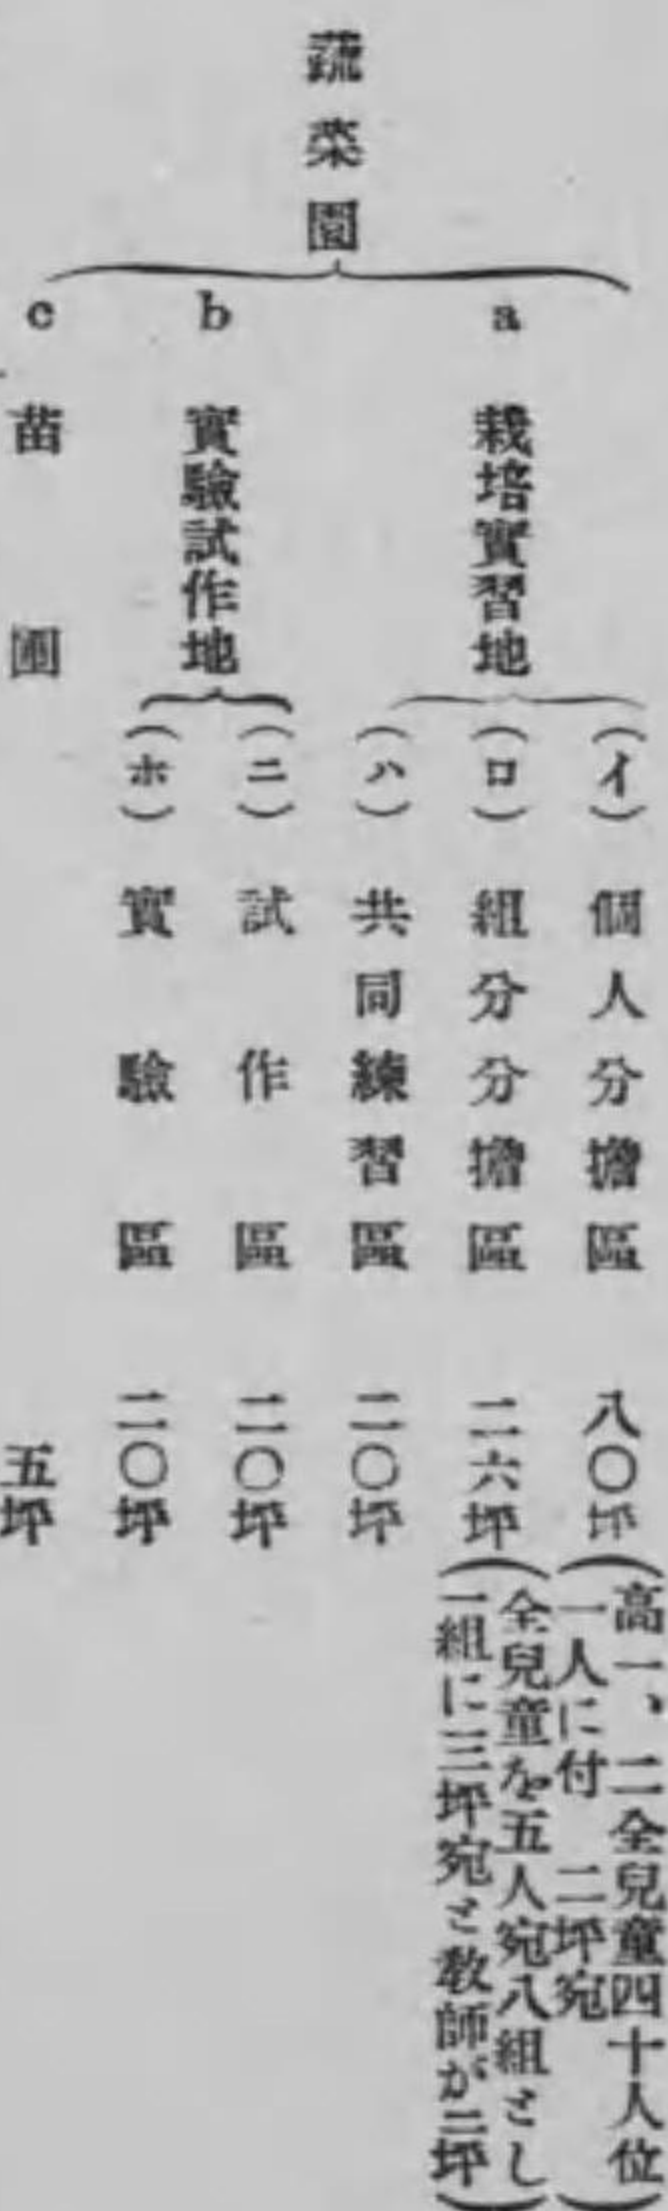 蔬菜園
a 栽培實習地
(イ) 個人分擔區 八〇坪(高一、二全兒童四十人位
一人に付 二坪宛)
(ロ) 組分分擔區 二六坪(全兒童を五人宛八組とし
一組に三坪宛と敎師が二坪)
(ハ) 共同練習區 二〇坪
b 實驗試作地
(ニ) 試作區 二〇坪
(ホ) 實驗區 二〇坪
c 苗圃 五坪